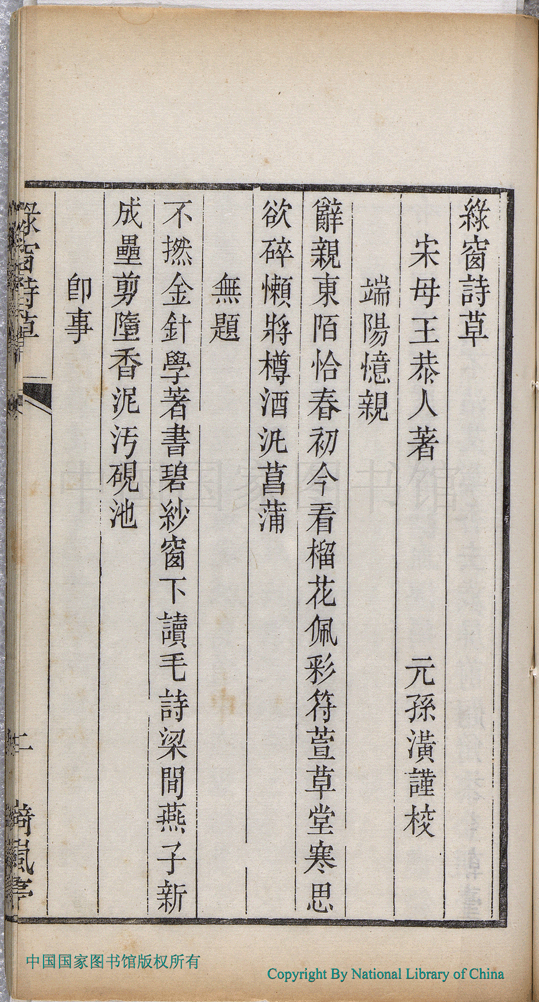 綠窗詩草
宋母王恭人著 元孫潢謹校
端陽憶親
辭親東陌恰春初今看榴花佩彩符萱草堂寒思
欲碎懶將樽酒泛菖蒲
無題
不撚金針學著書碧紗窗下讀毛詩梁間燕子新
成壘剪墮香泥汚硯池
卽事
綠窗詩草
中国国家图书馆
中国国家图书馆版权所有
Copyright By National Library of China